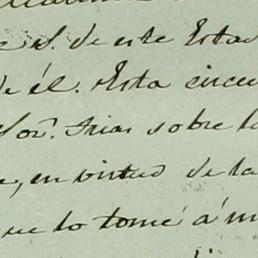 de este Estad
de él. Esta circu
Sor. Frias sobre l
, en virtud de la
que lo tomé á m